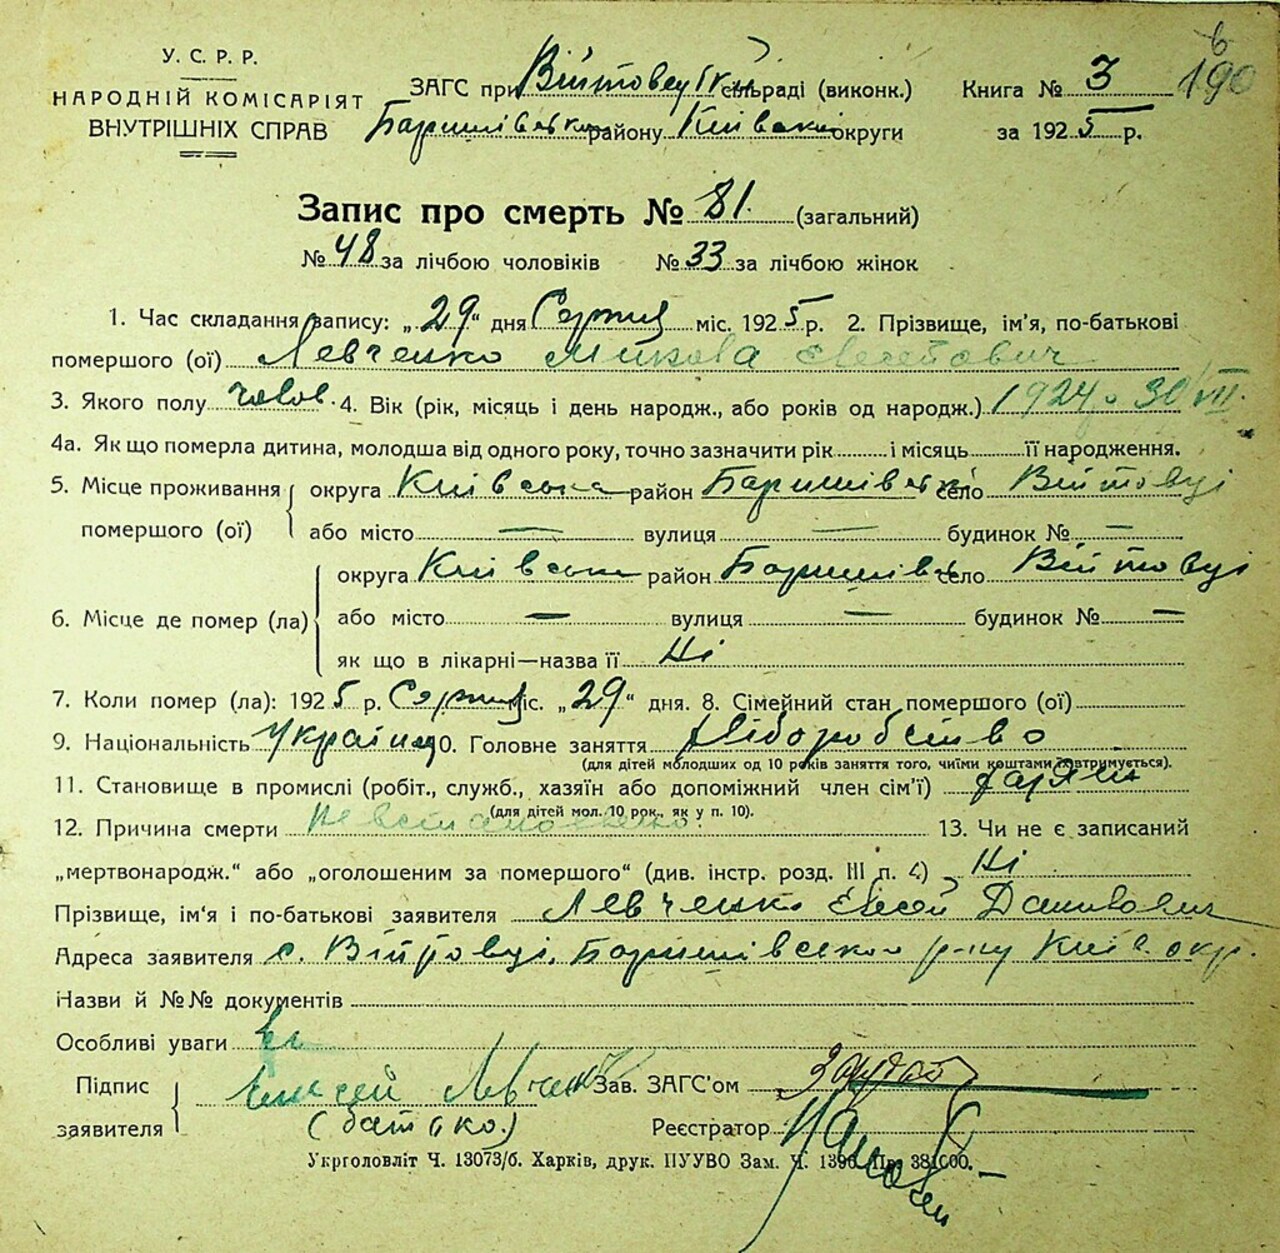 У. С. Р. Р.
НАРОДНІЙ КОМІСАРІЯТ
ВНУТРІШНІХ СПРАВ
190
ЗАГС при сільраді (виконк.) Книга № 3
району округи за 1925 р.
Запис про смерть № 81. (загальний)
№ 48 за лічбою чоловіків № 33 за лічбою жінок
1. Час складання запису: „29“ дня Серпня міс. 1925 р. 2. Прізвище, ім'я, по-батькові
помершого (ої) Левченко Микола
3. Якого полу чолов. 4. Вік (рік, місяць і день народж., або років од народж.) 1924 30/VII.
4а. Як що померла дитина, молодша від одного року, точно зазначити рік і місяць її народження.
5. Місце проживання помершого (ої) округа Київська район Баришівський село Війтовці
або місто — вулиця — будинок № —
6. Місце де помер (ла) округа Київська район село Війтовці
або місто — вулиця — будинок № —
як що в лікарні—назва її Ні
7. Коли помер (ла): 1925 р. Серпня міс. „29“ дня. 8. Сімейний стан помершого (ої)
9. Національність 10. Головне заняття Хліборобство
(для дітей молодших од 10 років заняття того, чиїми коштами утримується).
11. Становище в промислі (робіт., служб., хазяїн або допоміжний член сім'ї) хазяїн
(для дітей мол. 10 рок., як у п. 10).
12. Причина смерти невстановлено. 13. Чи не є записаний
„мертвонародж.“ або „оголошеним за помершого“ (див. інстр. розд. III п. 4) Ні
Прізвище, ім'я і по-батькові заявителя Левченко
Адреса заявителя с. Війтовці, Баришівського р-ну Київ. окр.
Назви й №№ документів
Особливі уваги
Підпис заявителя Левченко Зав. ЗАГС'ом
(батько.) Реєстратор
Укрголовліт Ч. 13073/б. Харків, друк. ПУУВО Зам. Ч.